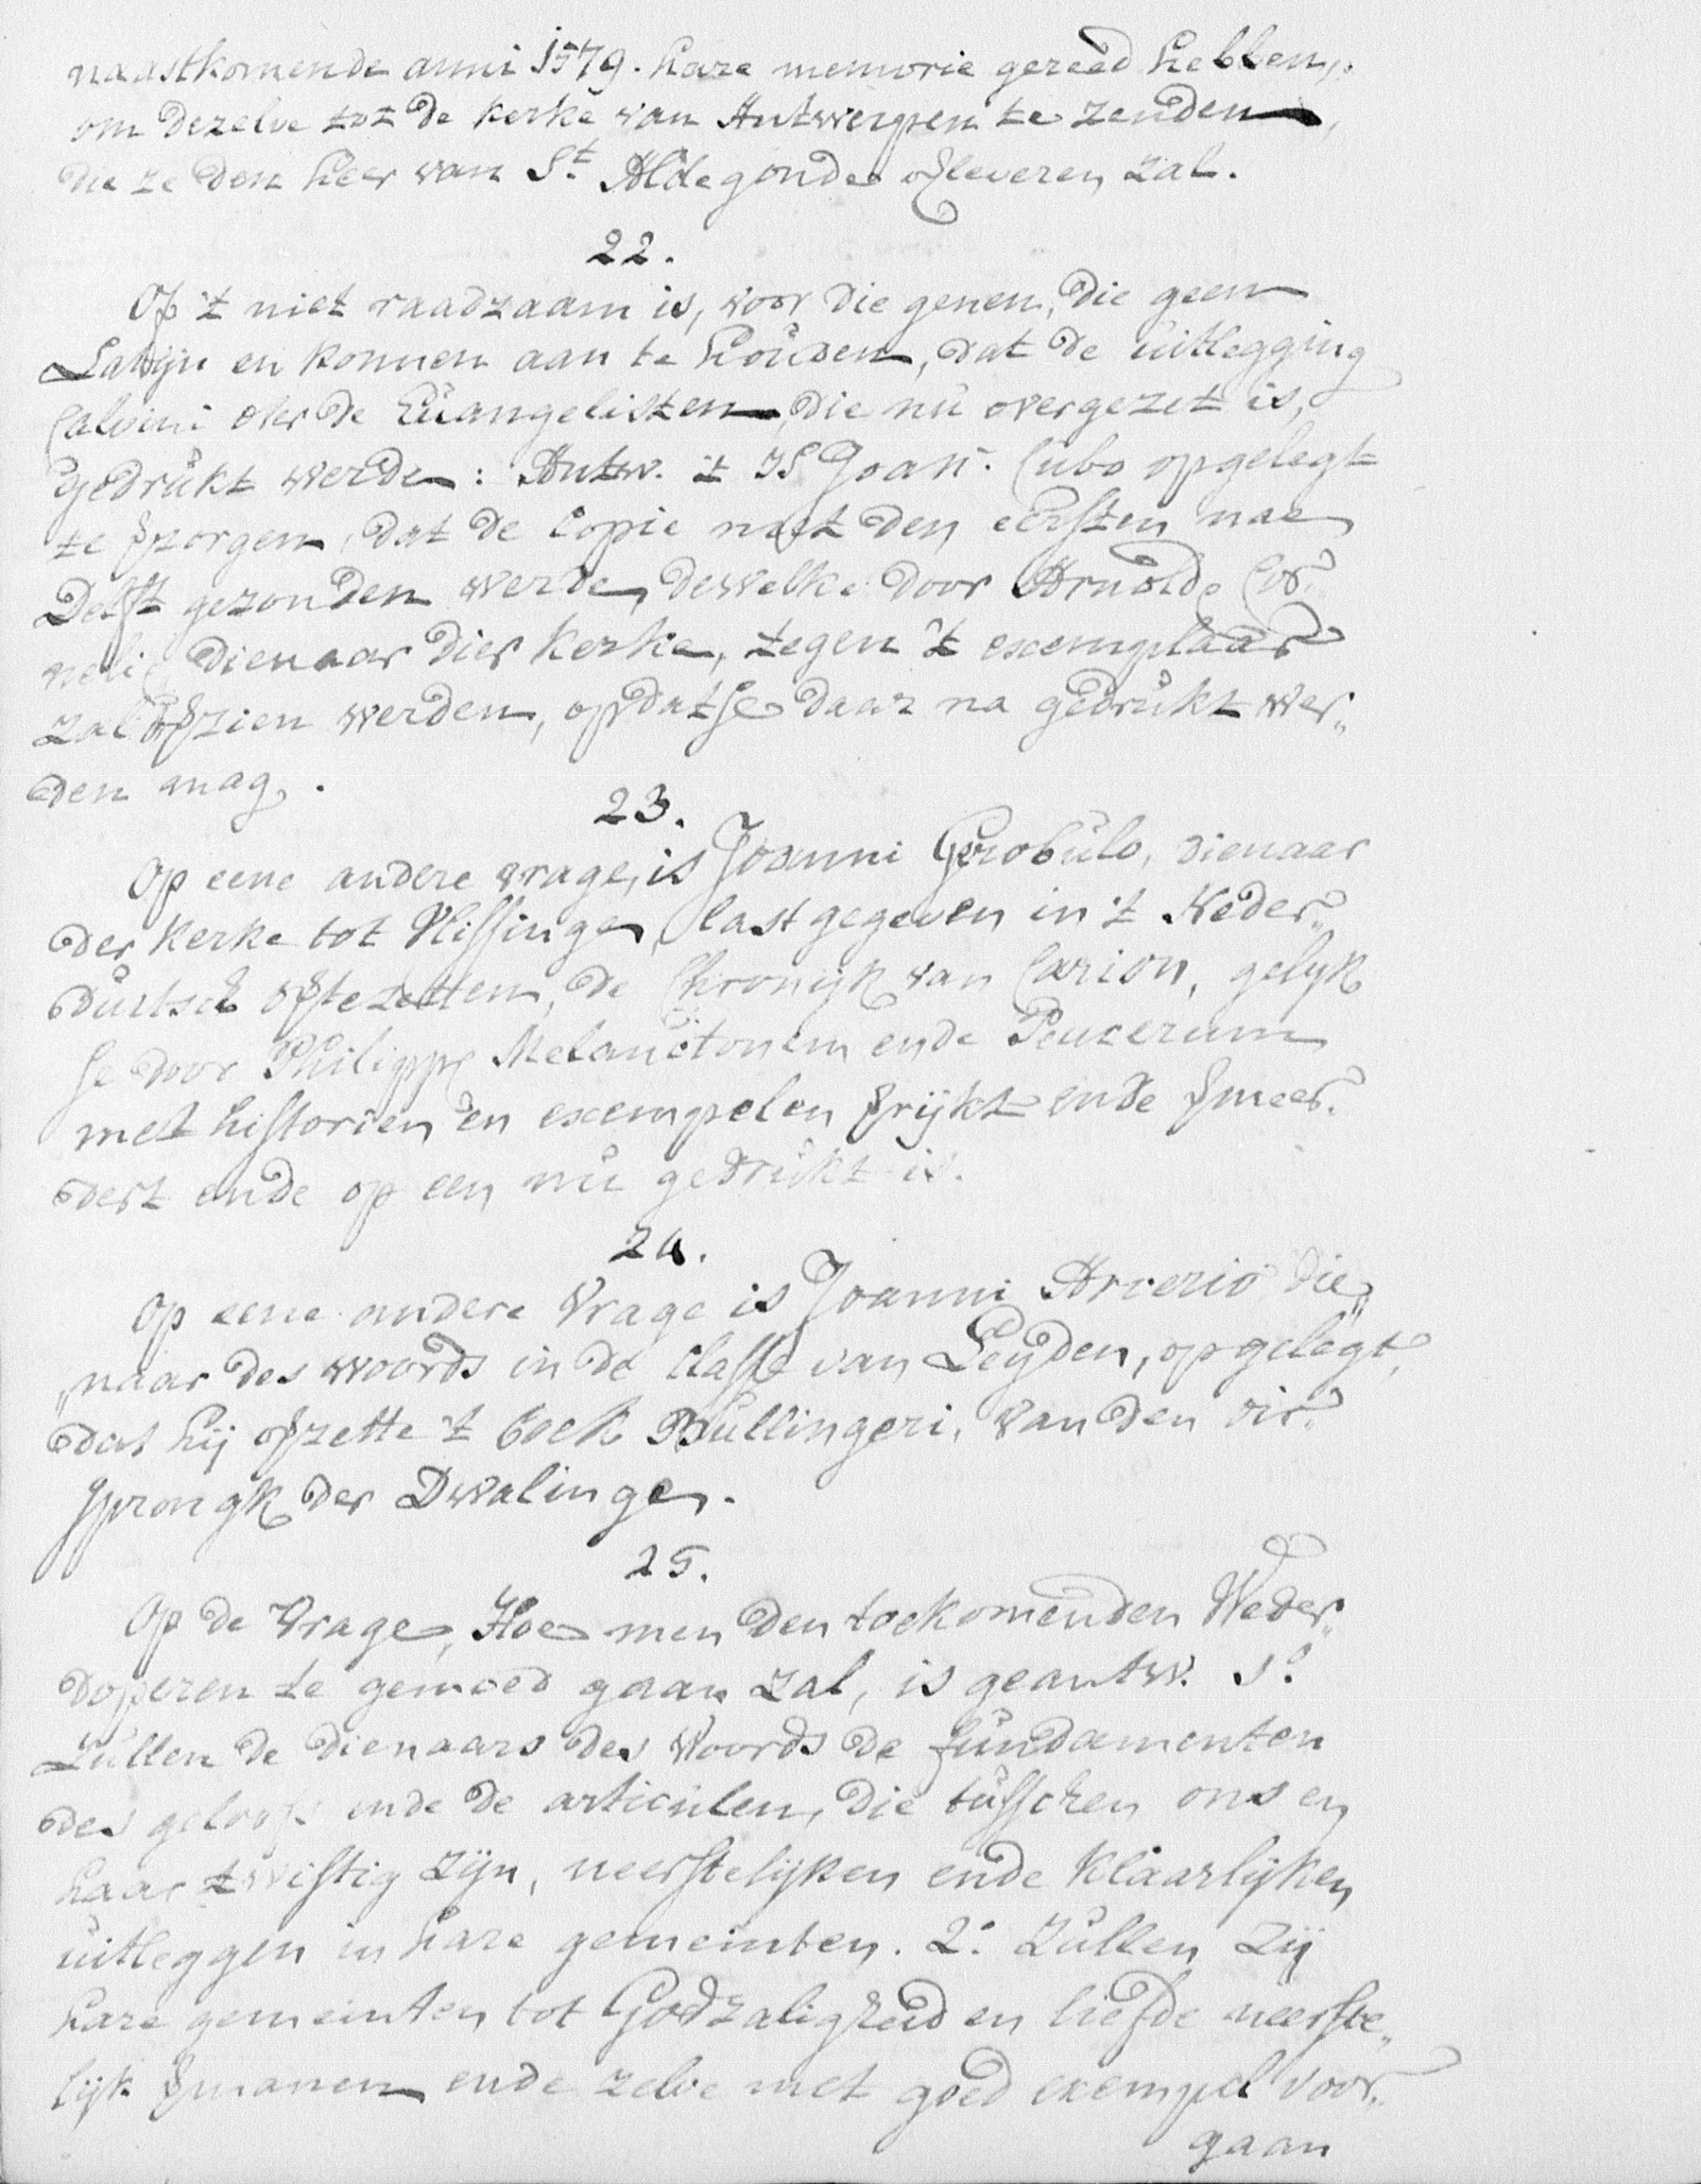 naastkomende anni 1579. hare memorie gereed hebben,
om dezelve tot de kerke van Antwerpen te zenden,
die ze den heer van St. Aldegonde overleveren zal.
22.
Of 't niet raadzaam is, voor die genen, die geen
Latijn en konnen aan te houden, dat de uitlegging
Calvini over de Euangelisten, die nu overgezet is,
gedrukt werde: Antw. 't IS Joan. Cubo opgelegt
te bezorgen, dat de Copie met den eersten nae
Delft gezonden werde, dewelke door Arnoldo Cor„
neli dienaar dier kerke, tegen 't exemplaar
zal overzien werden, opdatse daar na gedrukt wer„
den mag.
23.
Op eene andere vrage, is Joanni Gerobulo, dienaar
der kerke tot Vlissinge, last gegeven in 't Neder„
duitsch over te zetten, de Chronijk van Carion, gelijk
se door Philippum Melanctonem ende Peucerum
met historien en exempelen verrijkt ende vermeer„
dert ende op een nu gedrukt is.
24.
Op eene andere Vrage is Joanni Arcerio die„
„naar des woords in de classe van Leyden, opgelegt,
dat hij overzette 't boek Bullingeri, van den oir„
sprongk der Dwalinge.
25.
Op de Vrage, Hoe men den toekomenden Weder„
doperen te gemoed gaan zal, is geantw. 1°.
Zullen de dienaars des Woords de fundamenten
des geloofs ende de articulen, die tusschen ons en
haar twistig zijn, neerstelijken ende klaarlijken
uitleggen in hare gemeinten. 2°. Zullen zij
hare gemeinten tot Godzaligheid en liefde neerste„
lijk vermanen ende zelve met goed exempel voor„
gaan